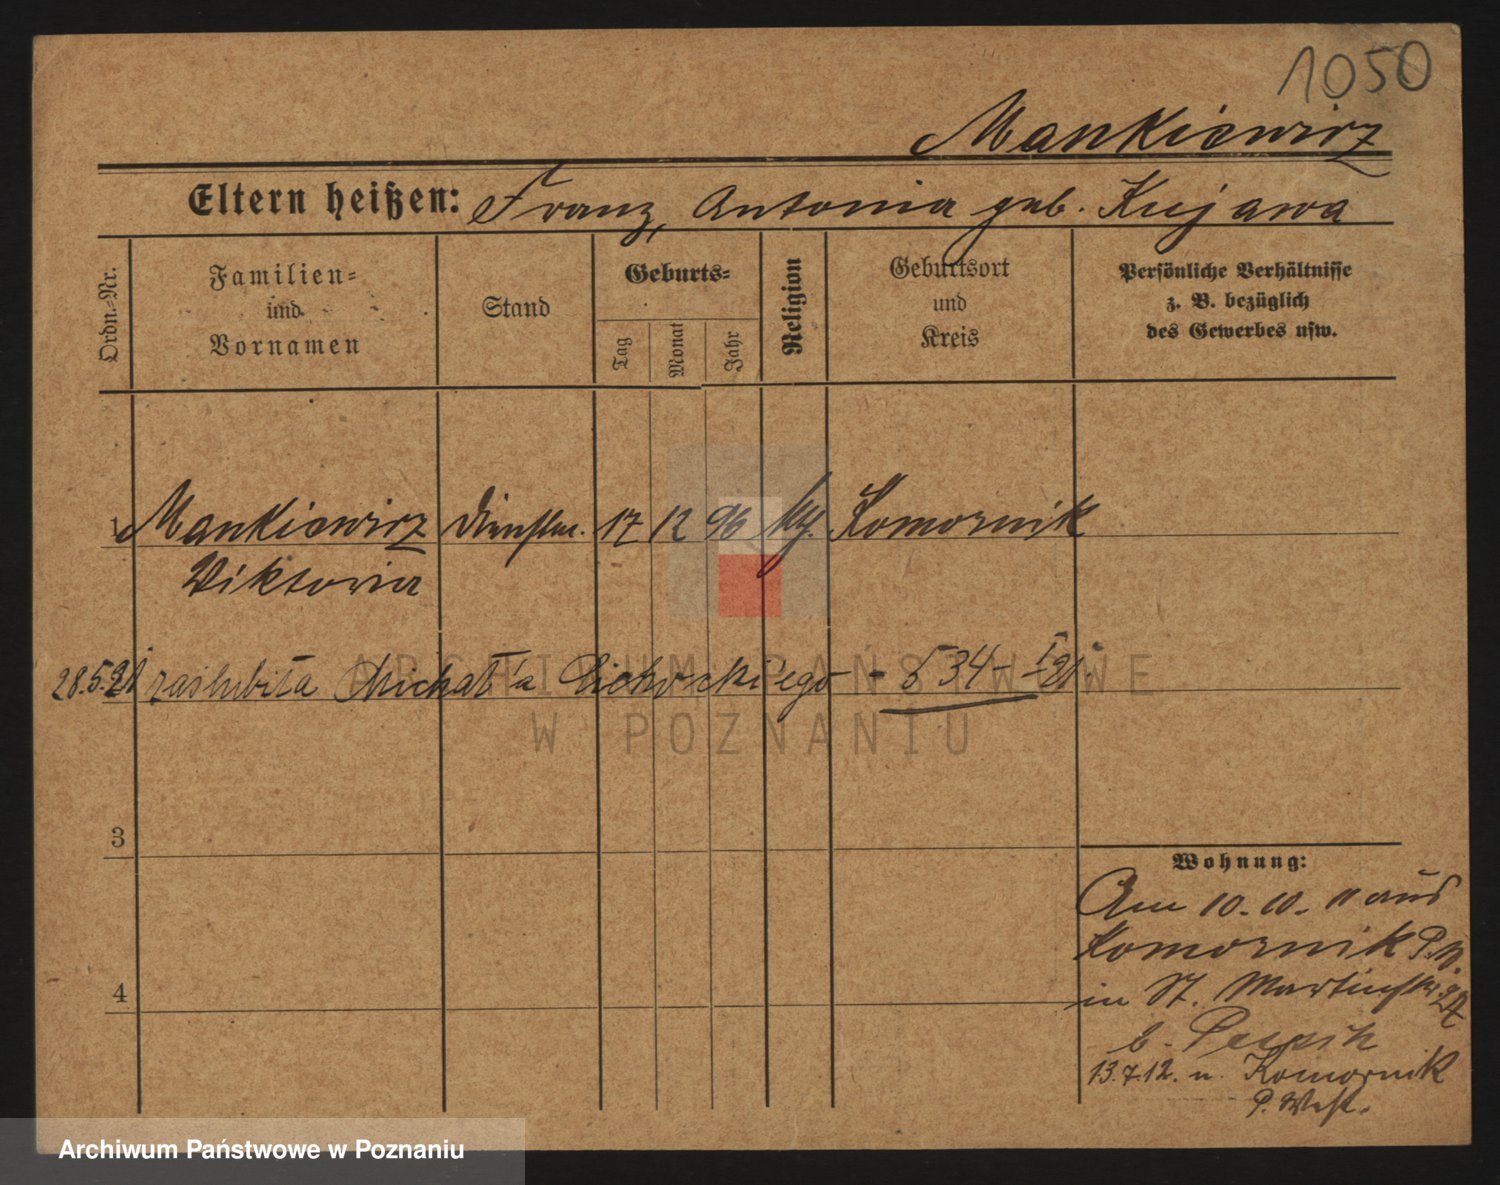 1050
Mankiewicz
Eltern heißen: Franz, Antonia geb. Kujawa
Ordn.-Nr.
Familien-
und
Vornamen
Stand
Geburts-
Tag
Monat
Jahr
Religion
Geburtsort
und
Kreis
Persönliche Verhältnisse
z. B. bezüglich
des Gewerbes usw.
1 Mankiewicz Dienstm. 17 12 96 kth. Komornik
Viktoria
28.5.21 zaślubiła Michał'a Cichockiego - 534 - 21.
ARCHIWUM PAŃSTWOWE
W POZNANIU
3
4
Wohnung:
Am 10. 10. 11 aus
Komornik P. W.
in St. Martinstr. 27
b. 
13.7.12. n. Komornik
P. West.
Archiwum Państwowe w Poznaniu